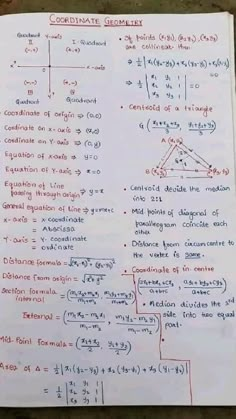 COORDINATE GEOMETRY
Quadrant
II
(-,+)
I - Quadrant
(+,+)
x-axis
(-,-)
III
Quadrant
(+,-)
IV
Quadrant
Coordinate of origin → (0,0)
Coordinate on x-axis → (x,0)
Coordinate on Y-axis → (0,y)
Equation of x-axis → y=0
Equation of Y-axis → x=0
Equation of Line
passing through origin → y=x
General equation of line → y=mx+c
x-axis = x coordinate
= Abscissa
Y-axis = y coordinate
= ordinate
Distance formula =
Distance from origin = √x²+y²
Section formula =
internal
External =
Mid Point Formula = (x₁+x₂/2, y₁+y₂/2)
Area of Δ = 1/2 | x₁(y₂-y₃) + x₂(y₃-y₁) + x₃(y₁-y₂) |
= 1/2 | x₁ y₁ 1
x₂ y₂ 1
x₃ y₃ 1 |
• If points (x₁,y₁), (x₂,y₂), (x₃,y₃)
are collinear then
⇒ 1/2 | x₁ y₁ 1
x₂ y₂ 1
x₃ y₃ 1 | = 0
• Centroid of a triangle
A (x₁, y₁)
G
B
C
• Centroid decide the median
into 2:1
• Mid points of diagonal of
parallelogram coincide each
other
• Distance from circumcentre to
the vertex is same.
• Coordinate of in centre
• Median divides the 3rd
side into two equal
part.